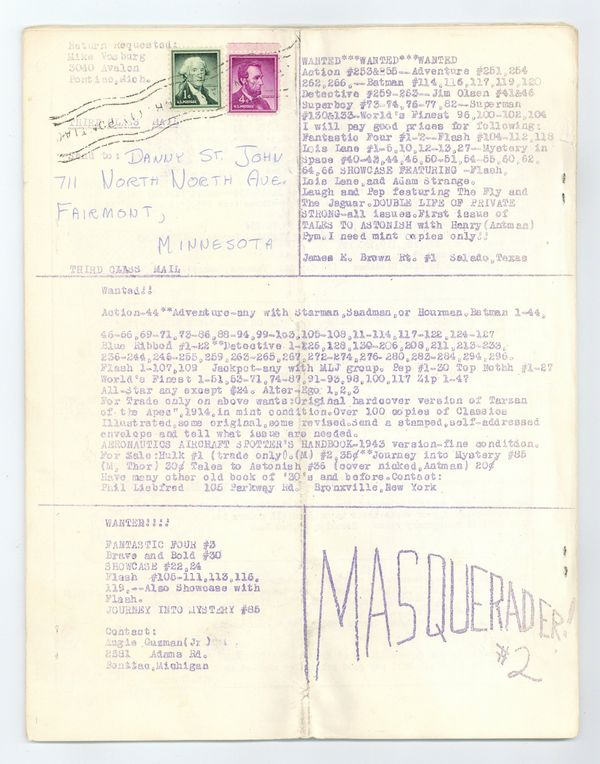 Return Requested:
Mike Vosburg
3040 Avalon
Pontiac, Mich.
1¢
U.S. POSTAGE
4¢
U.S. POSTAGE
THIRD CLASS MAIL
Send to: DANNY ST. JOHN
711 NORTH NORTH AVE.
FAIRMONT,
MINNESOTA
THIRD CLASS MAIL
WANTED***WANTED***WANTED
Action #253&55--Adventure #251,254
262,266,--Batman #114,116,117,119,120
Detective #259-263--Jim Olsen #41&46
Superboy #73-74,76-77,82--Superman
#130&133-World's Finest 96,100-102,104
I will pay good prices for following:
Fantastic Four #1-2--Flash #104-112,118
Lois Lane #1-5,10,12-13,27-Mystery in
Space #40-42,44,46,50-51,54-55,60,62,
64,66 SHOWCASE FEATURING -Flash,
Lois Lane, and Adam Strange.
Laugh and Pep featuring The Fly and
The Jaguar.DOUBLE LIFE OF PRIVATE
STRONG-all issues.First issue of
TALES TO ASTONISH with Henry(Antman)
Pym.I need mint copies only!!
James E. Brown Rt. #1 Salado,Texas
Wanted!!
Action-44**Adventure-any with Starman,Sandman,or Hourman.Batman 1-44,
46-66,69-71,73-86,88-94,99-103,105-108,11-114,117-122,124-127
Blue Ribbed #1-22**Detective 1-126,128,130-206,208,211,213-233,
236-244,246-255,259,263-265,267,272-274,276-280,283-284,294,296.
Flash 1-107,109 Jackpot-any with MLJ group. Pep #1-30 Top Nothh #1-27
World's Finest 1-51,53-71,74-87,91-93,98,100,117 Zip 1-47
All-Star any except #24. Alter-Ego 1,2,3
For Trade only on above wants:Original hardcover version of Tarzan
of the Apes",1914,in mint condition.Over 100 copies of Classics
Illustrated,some original,some revised.Send a stamped,self-addressed
envelope and tell what issue are needed.
AERONAUTICS AIRCRAFT SPOTTER'S HANDBOOK-1943 version-fine condition.
For Sale:Hulk #1 (trade only).(M) #2,35¢**Journey into Mystery #85
(M, Thor) 30¢ Tales to Astonish #36 (cover nicked,Antman) 20¢
Have many other old book of '30's and before.Contact:
Phil Liebfred 105 Parkway Rd. Bronxville,New York
WANTED!!!!
FANTASTIC FOUR #3
Brave and Bold #30
SHOWCASE #22,24
Flash #105-111,113,116,
119.--Also Showcase with
Flash.
JOURNEY INTO MYSTERY #85
Contact:
Augie Guzman(Jr)
2581 Adams Rd.
Pontiac,Michigan
MASQUERADER!
#2